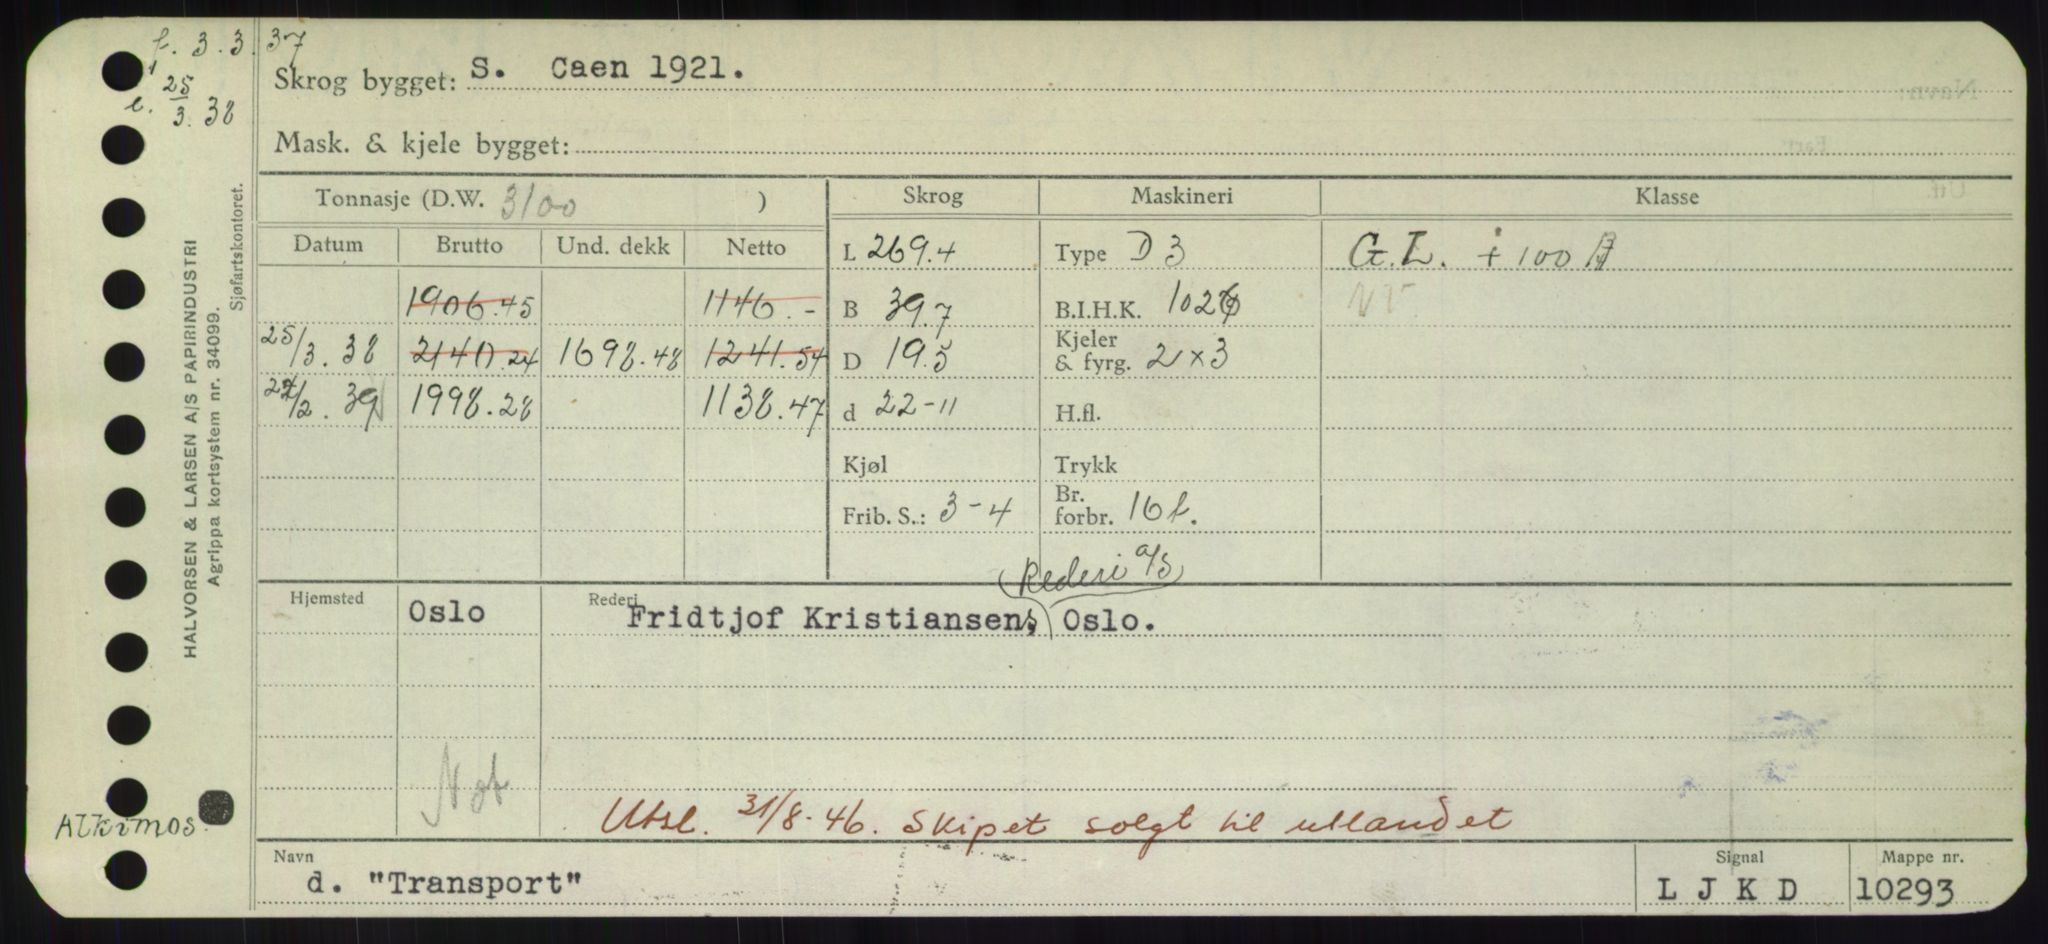 f. 3.3.37
e. 25/3.38
Skrog bygget: S. Caen 1921.
Mask. & kjele bygget:
Tonnasje (D.W. 3100 )
Skrog
Maskineri
Klasse
Datum Brutto Und. dekk Netto
1906.45 1146.-
25/3.38 2140.24 1698.48 1241.54
22/2.39 1998.28 1138.47
L 269.4
B 39.7
D 19.5
d 22-11
Kjøl
Frib. S.: 3-4
Type D 3
B.I.H.K. 1026
Kjeler & fyrg. 2 x 3
H.fl.
Trykk
Br. forbr. 16 t.
G.L. + 100 A
Hjemsted Oslo
Rederi Fridtjof Kristiansens Rederi a/s, Oslo.
Not
Utsl. 31/8.46. Skipet solgt til utlandet
Navn d. "Transport"
Signal L J K D
Mappe nr. 10293
Alkimos.
HALVORSEN & LARSEN A/S PAPIRINDUSTRI
Agrippa kortsystem nr. 34099.
Sjøfartskontoret.